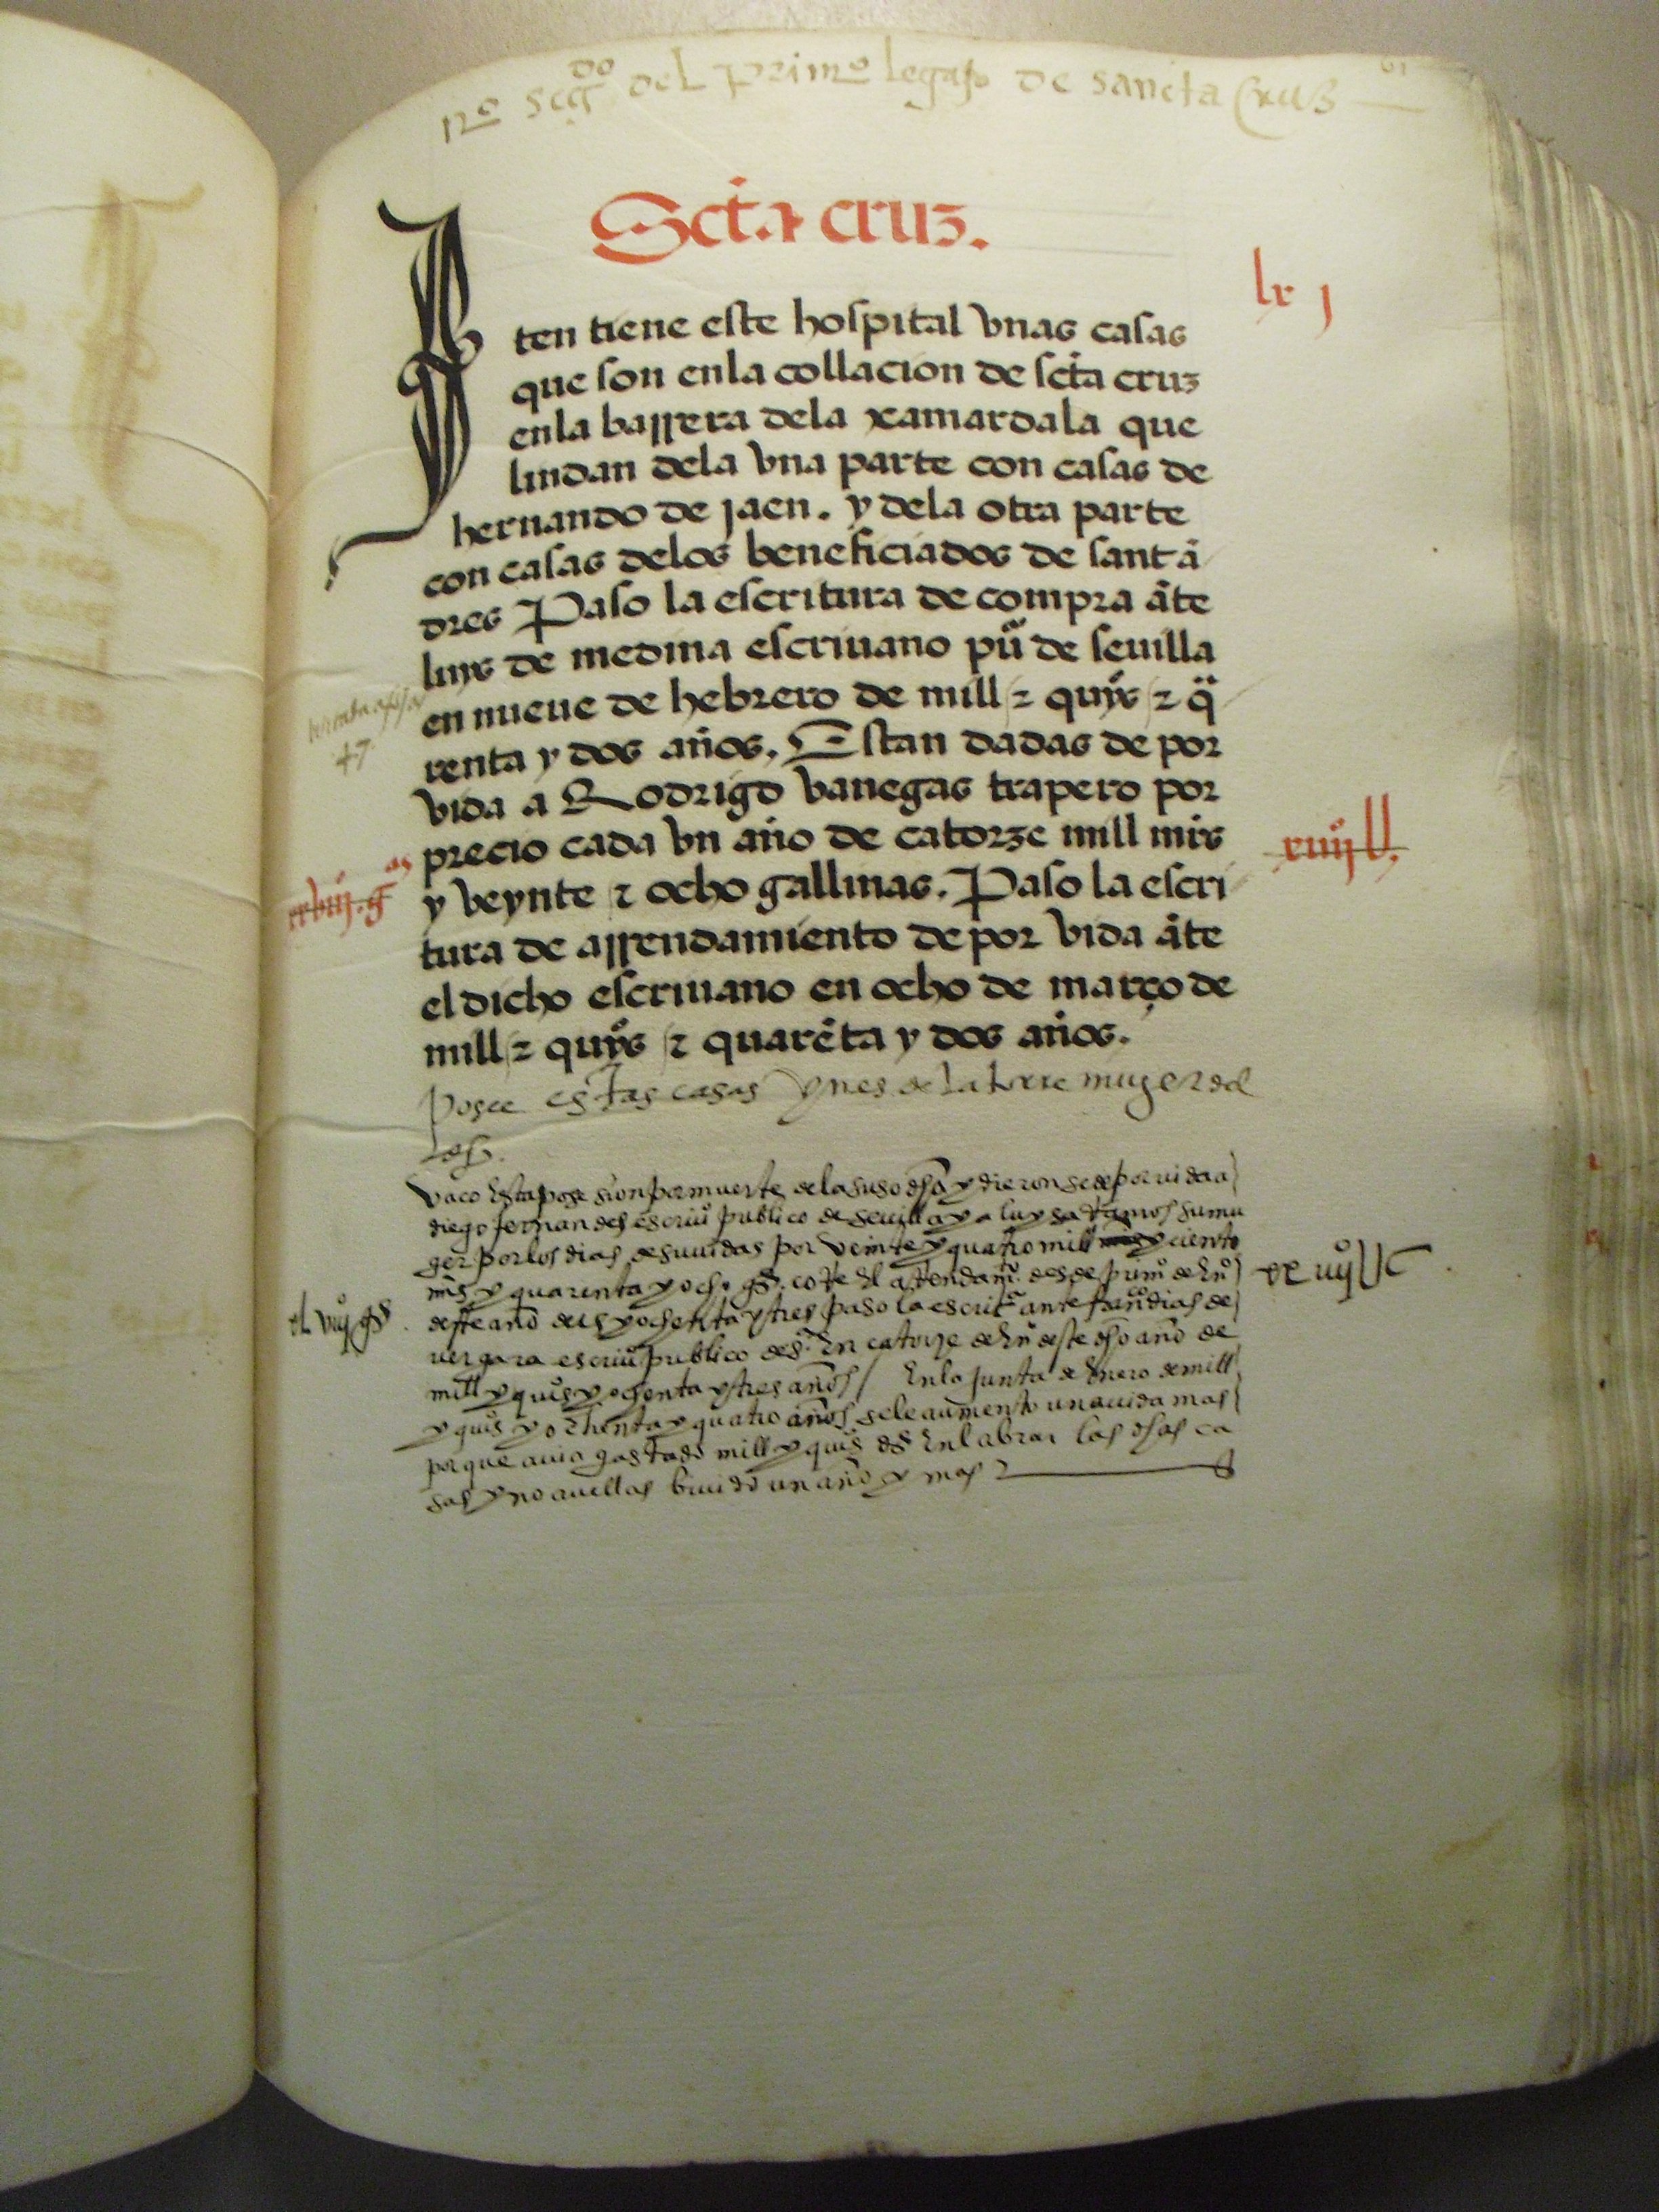 nº segdo del primº legajo de sancta Cruz
61
Scta cruz.
lx j
Iten tiene este hospital vnas casas
que son enla collacion de scta cruz
enla barrera dela xamardala que
lindan dela vna parte con casas de
hernando de jaen. y dela otra parte
con casas delos beneficiados de santā
dres Paso la escritura de compra āte
luys de medina escriuano pu͞ de seuilla
en nueue de hebrero de mill ⁊ quiºs ⁊ q̄
renta y dos años. Estan dadas de por
vida a Rodrigo vanegas trapero por
precio cada vn año de catorze mill mrs
xiiijU.
y veynte ⁊ ocho gallinas. Paso la escri
xxviij. gas
tura de arrendamiento de por vida āte
el dicho escriuano en ocho de março de
mill ⁊ quiºs ⁊ quarēta y dos años.
posee estas casas ynes de la torre muger del
Vaco esta posesion por muerte de la suso dha y dieronse de por vida a
diego fernandes escriuº publico de seuilla y a luysa ramos su mu
ger por los dias de su vidas por veinte y quatro mill y ciento
xx iiijUC
mrs y quarenta y ocho gas. corre el arrendamº. desde primº de enº
xl viijº gas
deste año de y ochenta y tres paso la escritª ante franº dias de
vergara escriuº publico de sª en catorze de enº deste dho año de
mill y quiºs y ochenta y tres años / En la junta de Enero de mill
y quiºs y ochenta y quatro años se le aumento una vida mas
porque auia gastado mill y quiºs ds en labrar las dhas ca
sas y no auellas biuido un año y mas